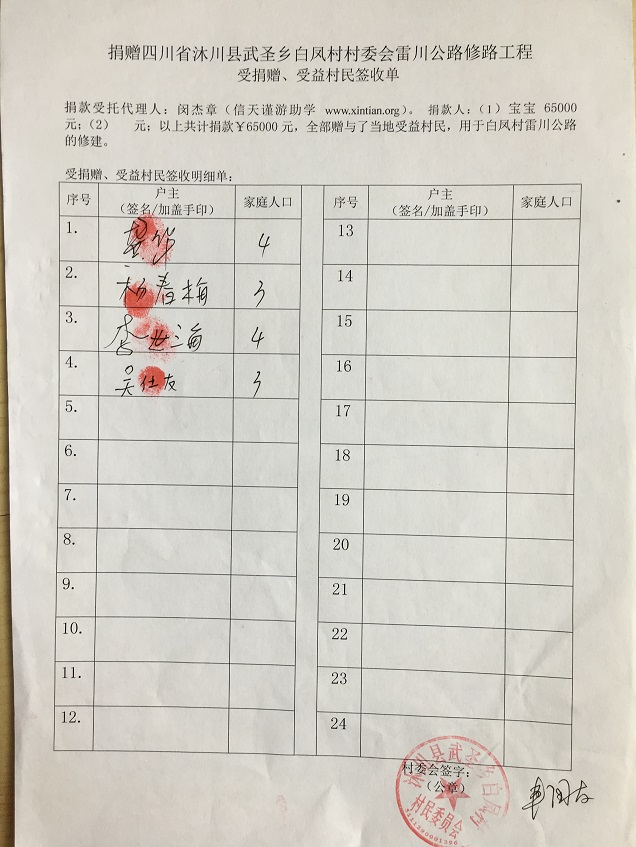 捐赠四川省沐川县武圣乡白凤村村委会雷川公路修路工程
受捐赠、受益村民签收单
捐款受托代理人：闵杰章（信天谨游助学 www.xintian.org）。 捐款人：（1）宝宝 65000
元；（2） 元；以上共计捐款￥65000 元，全部赠与了当地受益村民，用于白凤村雷川公路
的修建。
受捐赠、受益村民签收明细单：
序号 户主（签名/加盖手印） 家庭人口 序号 户主（签名/加盖手印） 家庭人口
1. 4 13
2. 杨春梅 3 14
3. 李世海 4 15
4. 吴仕友 3 16
5. 17
6. 18
7. 19
8. 20
9. 21
10. 22
11. 23
12. 24
村委会签字：
（公章）
沐川县武圣乡白凤村
村民委员会